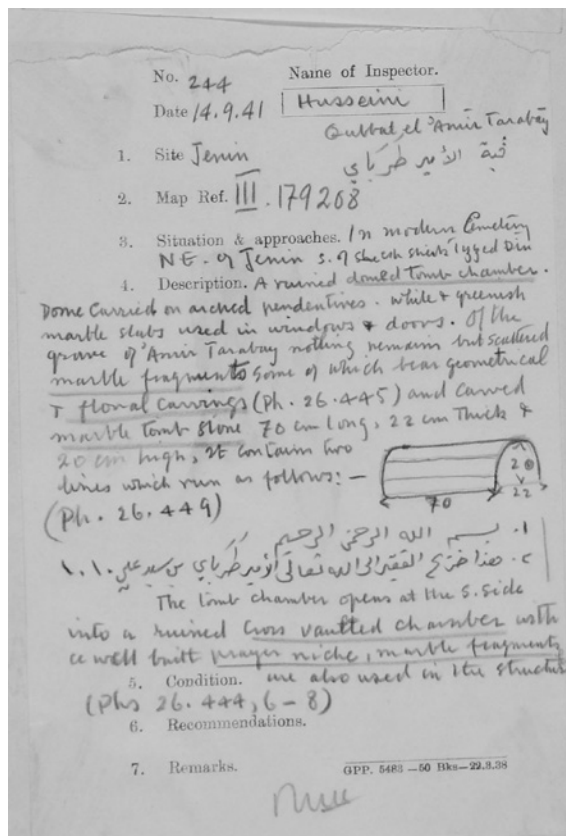 No. 244 Name of Inspector.
Date 14.9.41 Husseini
Qubbat el 'Amir Tarabay
1. Site Jenin
قبة الأمير طَرَباي
2. Map Ref. III. 179208
3. Situation & approaches. In modern Cemetery
N E. of Jenin S. of Sheikh
4. Description. A ruined domed tomb chamber.
Dome Carried on arched pendentives. White & greenish
marble slabs used in windows & doors. Of the
grave of 'Amir Tarabay nothing remains but scattered
marble fragments some of which bear geometrical
& floral carvings (Ph. 26.445) and carved
marble tomb stone 70 cm long, 22 cm thick &
20 cm high, It contains two
lines which run as follows: —
(Ph. 26.449)
20
70
22
١. بسم الله الرحمن الرحيم
٢. هذا ضريح الفقير الى الله تعالى الأمير طَرَباي بن علي ١٠١٠
The tomb chamber opens at the S. side
into a ruined Cross vaulted chamber with
a well built prayer niche, marble fragments
5. Condition. are also used in the structure
(Phs 26.444, 6-8)
6. Recommendations.
7. Remarks. GPP. 5483 —50 Bks—22.8.38